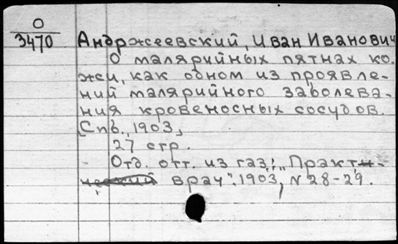 О
3470
Андржеевский, Иван Иванович
О малярийных пятнах ко-
жи, как одном из проявле-
ний малярийного заболева-
ния кровеносных сосудов.
Спб., 1903,
27 стр.
Отд. отт. из газ: „Практ
врач". 1903, N 28-29.